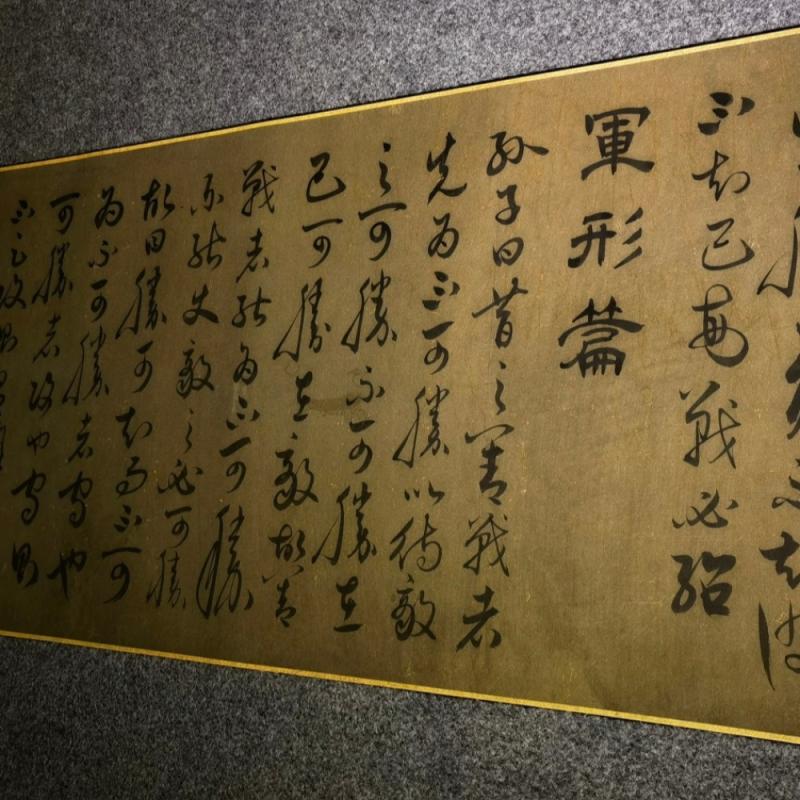 一勝一負不知彼
不知己每戰必殆
軍形篇
孫子曰昔之善戰者
先為不可勝以待敵
之可勝不可勝在
己可勝在敵故善
戰者能為不可勝
不能使敵之必可勝
故曰勝可知而不可
為不可勝者守也
可勝者攻也守則
不足攻則